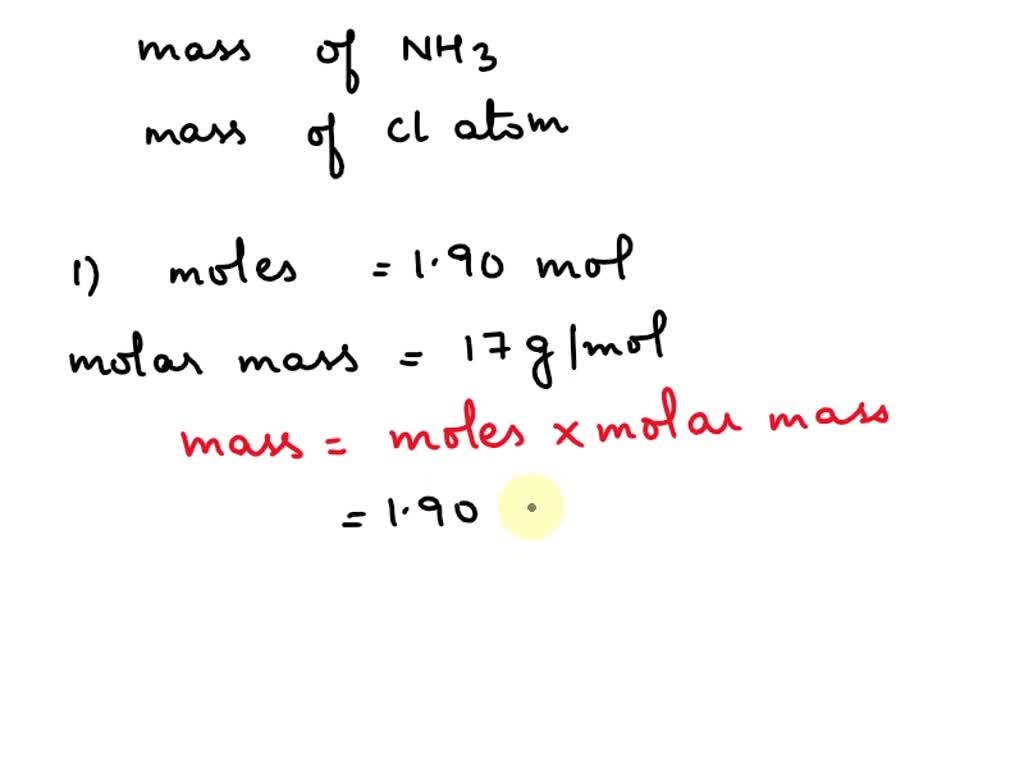 mass of NH3
mass of Cl atom
1) moles = 1.90 mol
molar mass = 17 g/mol
mass = moles x molar mass
= 1.90